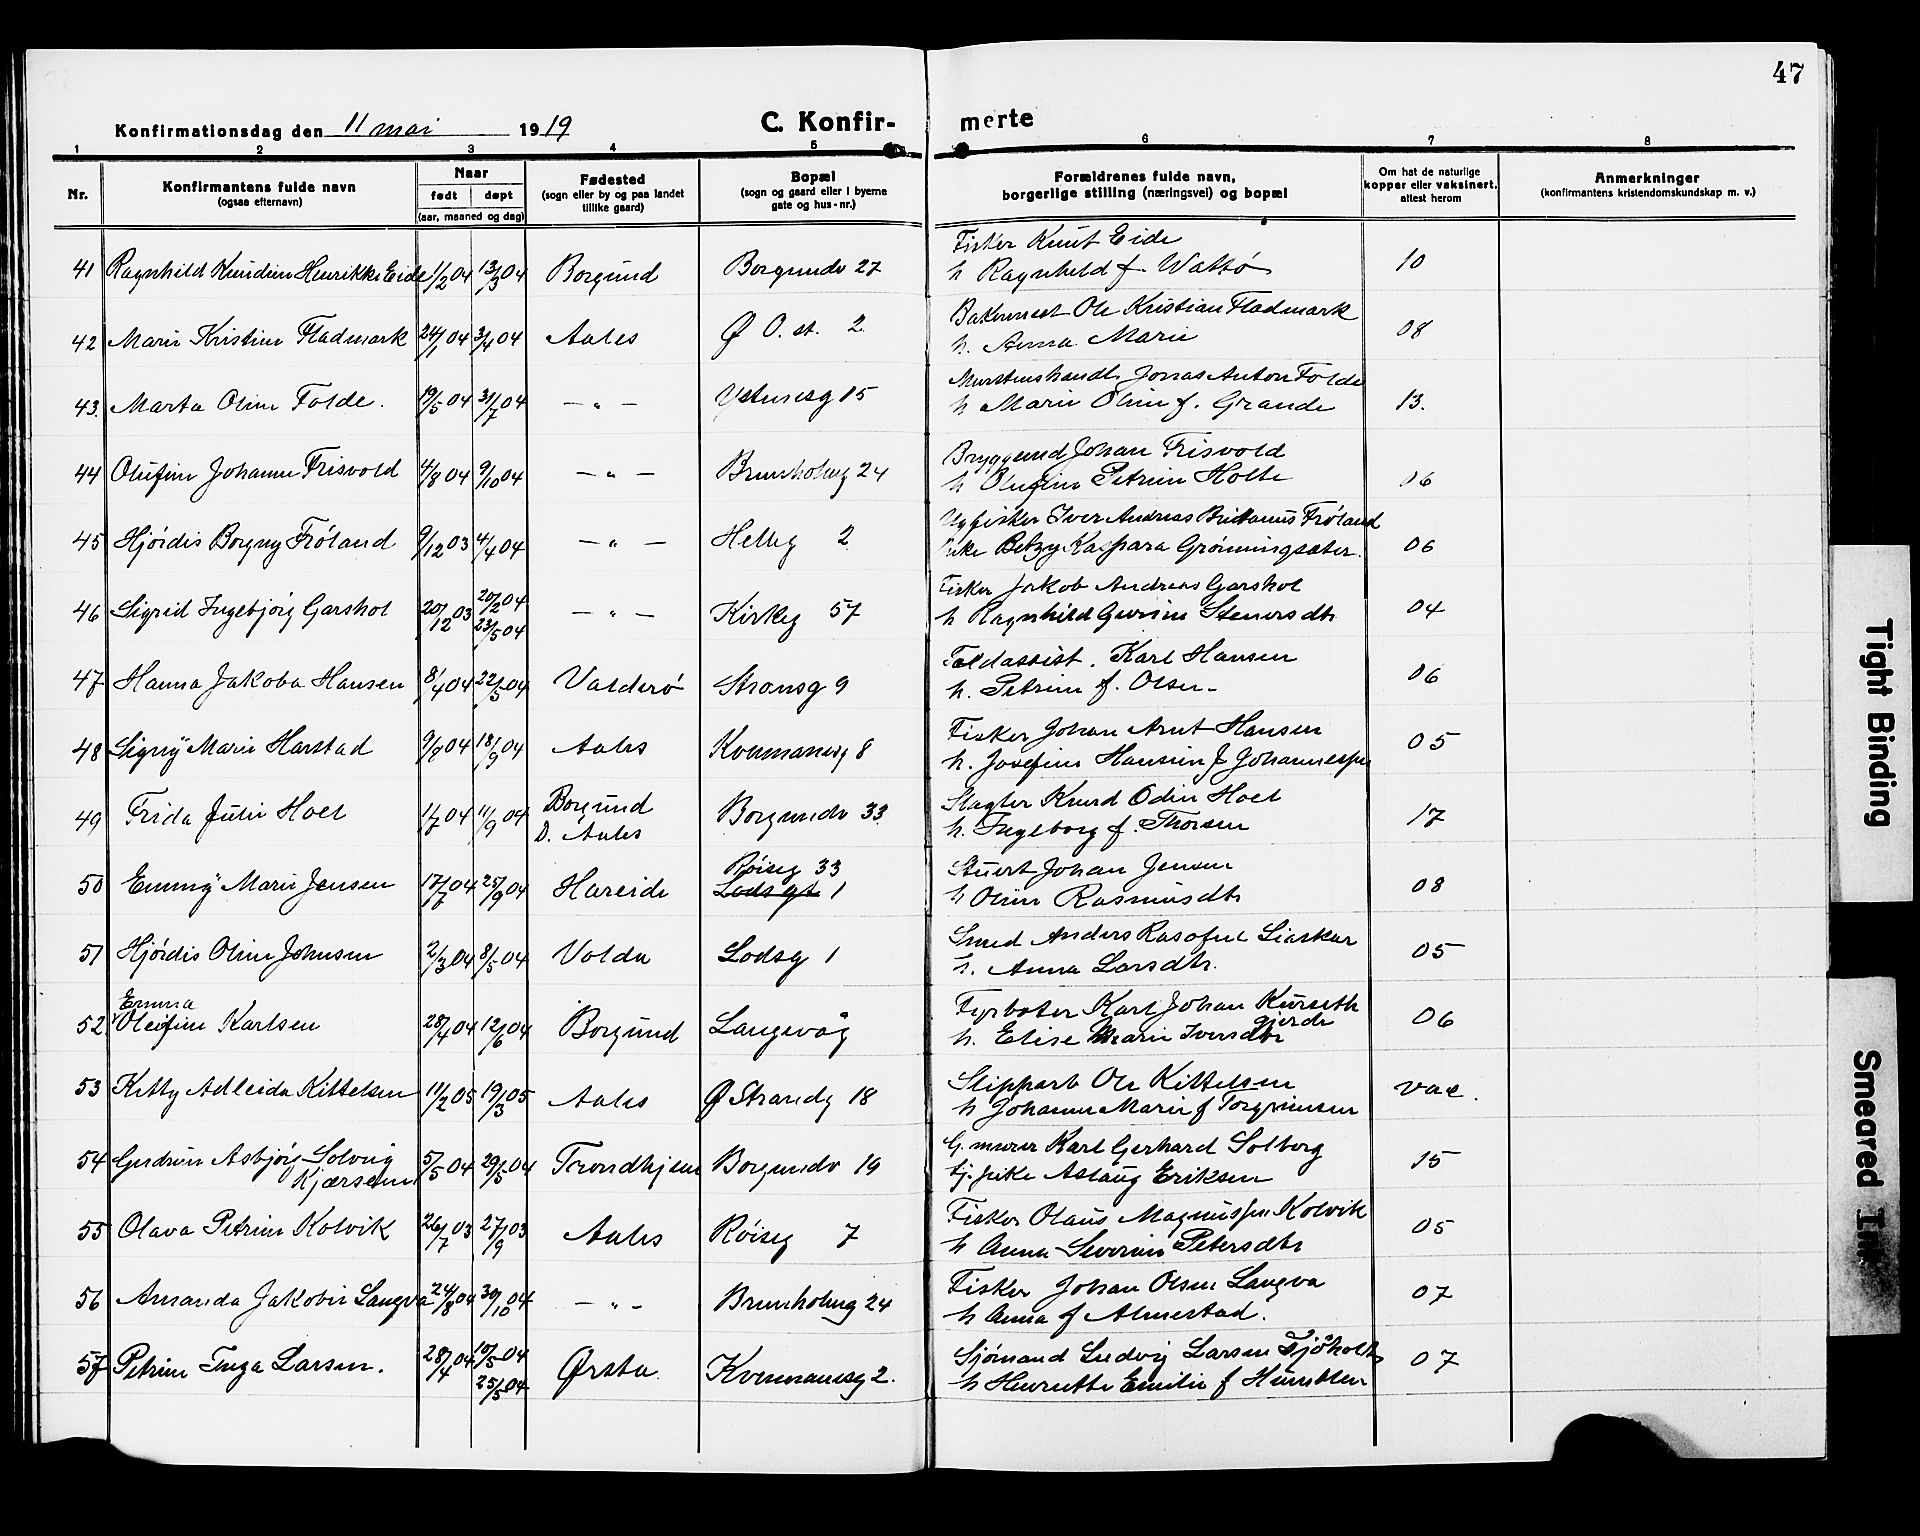 47
Konfirmationsdag den 11 mai 1919
C. Konfir- merte
1 2 3 4 5 6 7 8
Nr.
Konfirmantens fulde navn
(ogsaa efternavn)
Naar
født døpt
(aar, maaned og dag)
Fødested
(sogn eller by og paa landet
tillike gaard)
Bopæl
(sogn og gaard eller i byerne
gate og hus-nr.)
Forældrenes fulde navn,
borgerlige stilling (næringsvei) og bopæl
Om hat de naturlige
kopper eller vaksinert,
attest herom
Anmerkninger
(konfirmantens kristendomskundskap m. v.)
Fisker Knut Eide
41 Ragnhild Knudine Henrikke Eide 1/2 04 13/3 04 Borgund Borgundv 27 h Ragnhild f. Wattø 10
Ole Kristian Fladmark
42 Marie Kristine Fladmark 24/1 04 3/4 04 Aales Ø O. st. 2 h. Anna Marie 08
Jonas Anton Folde
43. Marta Oline Folde. 19/5 04 31/7 04 — „ — 15 h Marie Oline f. Grande 13.
Johan Frisvold
44 Olufine Johanne Frisvold 4/8 04 9/10 04 — „ — Brunholmg 24 h Olufine Petrine Holte 06
Ugfisker Iver Andreas Frøland
45 Hjørdis Borgny Frøland 9/12 03 4/4 04 — „ — Helleg 2 Pike Betzy Kaspara Grønningsæter. 06
Fisker Jakob Andreas Garshol
46 Sigrid Ingebjørg Garshol 20/12 03 20/2 04 23/5 04 — „ — Kirkeg 57 h Ragnhild Gurine Steversdtr 04
Toldassist. Karl Hansen
47 Hanna Jakoba Hansen 8/4 04 22/5 04 Valderø Stransg 9 h. Petrine f. Olsen 06
Fisker Johan Arnt Hansen
48 Signÿ Marie Harstad 04 18/9 04 Aales 8 h. Josefine Hansine f Johannessen 05
Slagter Knud Odin Hoel
49 Frida Julie Hoel 1/7 04 11/9 04 Borgund D. Aales Borgundv 33 h. Ingeborg f. Thorsen 17
Røiseg 33
Stuert Johan Jensen
50 Emmÿ Marie Jensen 17/7 04 25/9 04 Hareide Lodsgt 1 h Oline Rasmusdtr 08
Smed Anders
51 Hjørdis Oline Johnsen 2/3 04 8/5 04 Volda Lodsg 1 h. Anna Larsdtr. 05
Emma
Fyrbøter Karl Johan
52 Oleifine Karlsen 28/4 04 12/6 04 Borgund Langevåg h. Elise Marie Iversdtr gjerde 06
Ole Kittelsen
53 Kitty Adleida Kittelsen 11/2 05 19/3 05 Aales Ø Strandg 18 h Johanne Marie f Torgrimsen vac.
G. murer Karl Gerhard Solberg
54 Gudrun Asbjørg Solveig Kjærstine 5/5 04 29/5 04 Trondhjem Borgundv 19 tj. pike Aslaug Eriksen 15
Fisker Olaus Magnussen Kolvik
55 Olava Petrine Kolvik 26/7 03 27/9 03 Aales Røiseg 7 h Anna Severine Petersdtr 05
Fisker Johan Olsen Langva
56 Amanda Jakobie Langva 24/8 04 30/10 04 — „ — Brunholmg 24 h Anna f Almestad. 07
Sjømand Ludvig Larsen Sjøholt
57 Petrine Inga Larsen. 28/4 04 10/5 04 25/5 04 Ørsta. 2. h Henriette Emilie f Humblen 07
Tight Binding
Smeared Ink